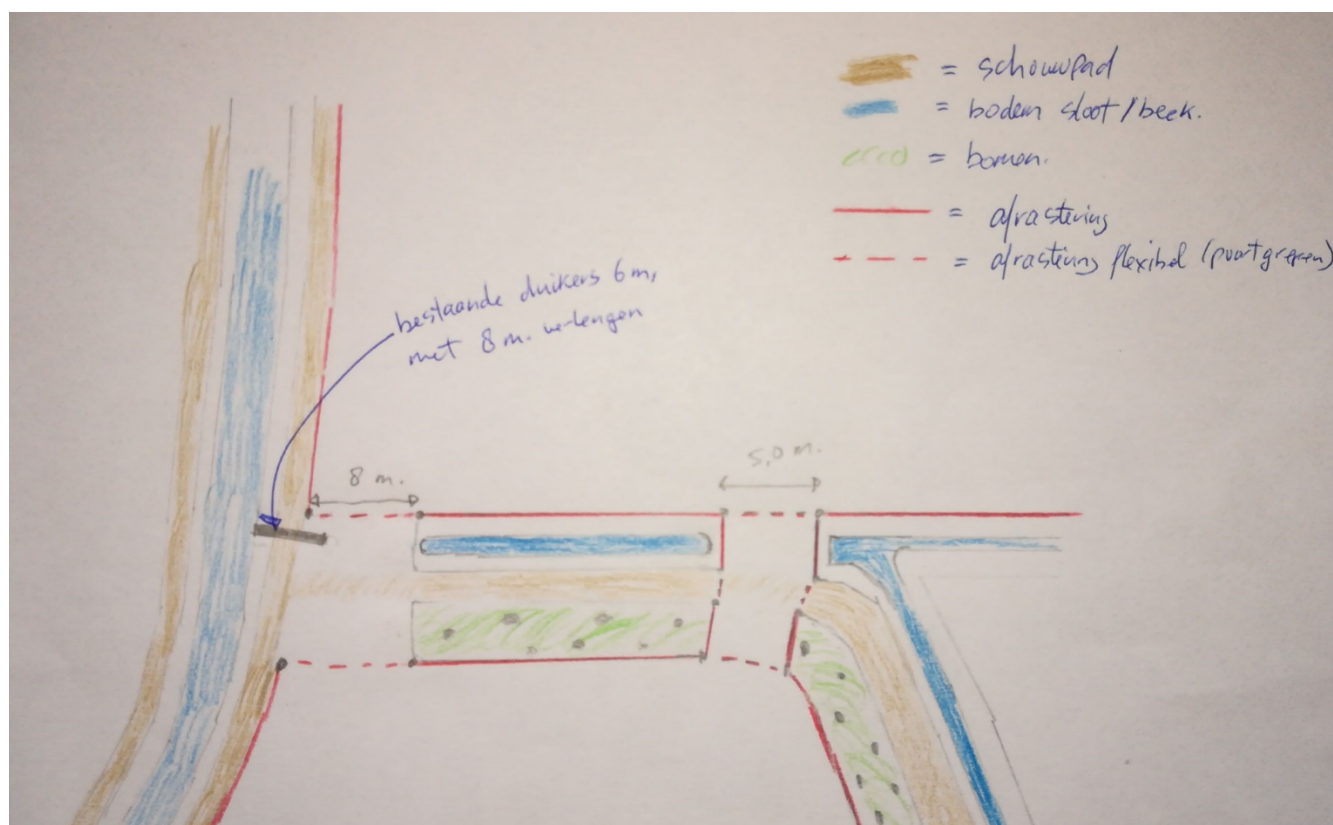 = schouwpad
= bodem sloot/beek.
= bomen.
= afrastering
= afrastering flexibel (poortgrepen)
bestaande duikers 6 m,
met 8 m. verlengen
8 m.
5,0 m.